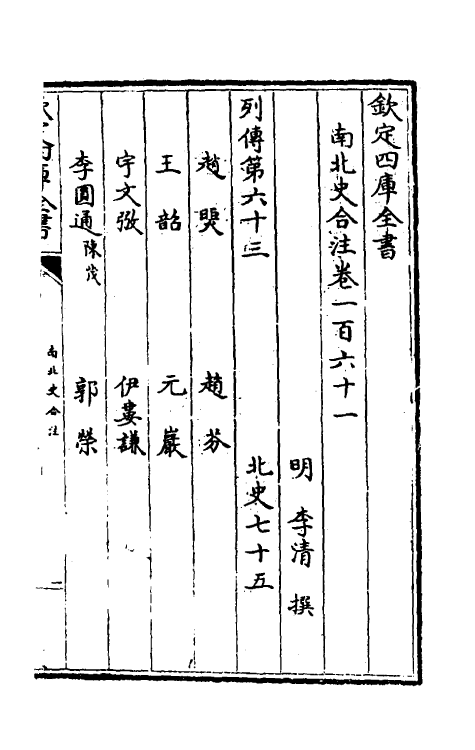 欽定四庫全書
南北史合注卷一百六十一
明 李清 撰
列傳第六十三 北史七十五
趙煚 趙芬
王韶 元巖
宇文㢸 伊婁謙
李圓通 陳茂 郭榮
南北史合注